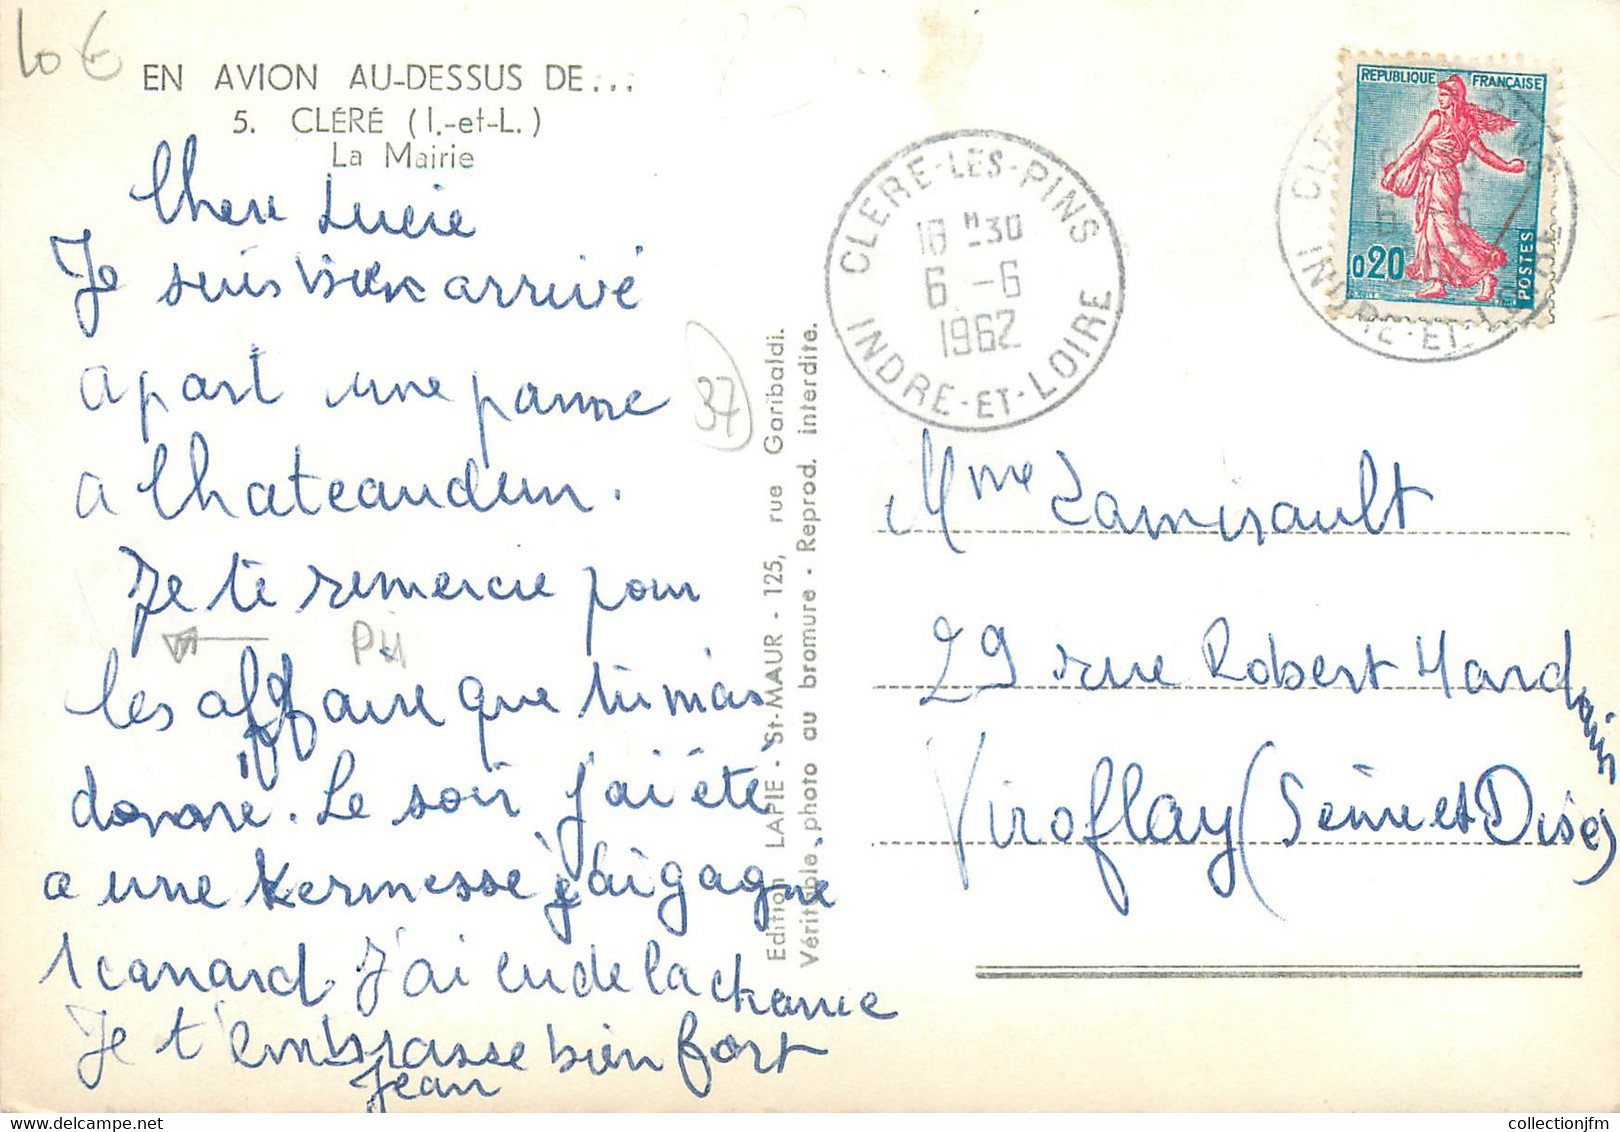 10 €
EN AVION AU-DESSUS DE...
5. CLÉRÉ (I.-et-L.)
La Mairie
Chere Lucie
Je suis bien arrivé
apart une panne
a Chateaudun.
Je te remercie pour
les affaire que tu mas
donnne. Le soir j'ai été
a une kermesse j'ai gagné
1 canard J'ai eu de la chance
Je t'embrasse bien fort
Jean
37
PH
Edition LAPIE - St-MAUR - 125, rue Garibaldi.
Véritable photo au bromure - Reprod. interdite.
CLERE-LES-PINS
18 H 30
6 - 6
1962
INDRE-ET-LOIRE
REPUBLIQUE FRANÇAISE
0,20
POSTES
INDRE-ET-LOIRE
Mme Lamirault
29 rue Robert Hardouin
Viroflay (Seine et Oise)
collectionjfm